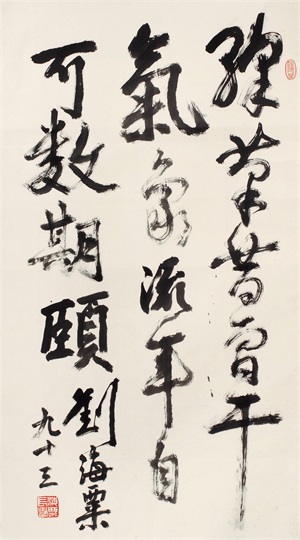 綵筆昔曾干
氣象流年自
可数期頤
劉海粟
九十三